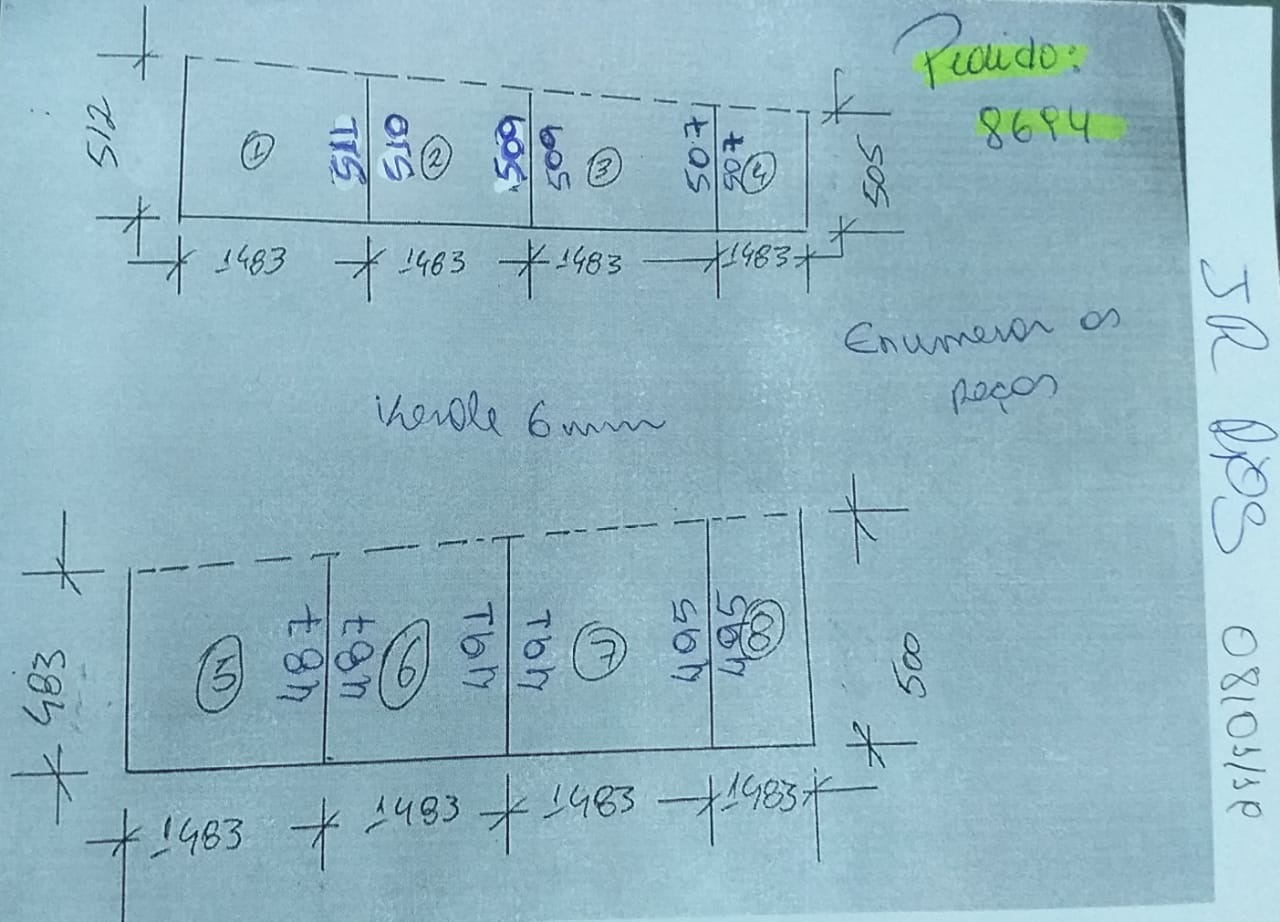 Pedido:
8694
512
①
511
510
②
509
509
③
507
507
④
505
1483
1483
1483
1483
Enumerar as
peças
Verde 6mm
483
⑤
487
487
⑥
491
491
⑦
495
495
⑧
500
1483
1483
1483
1483
JR